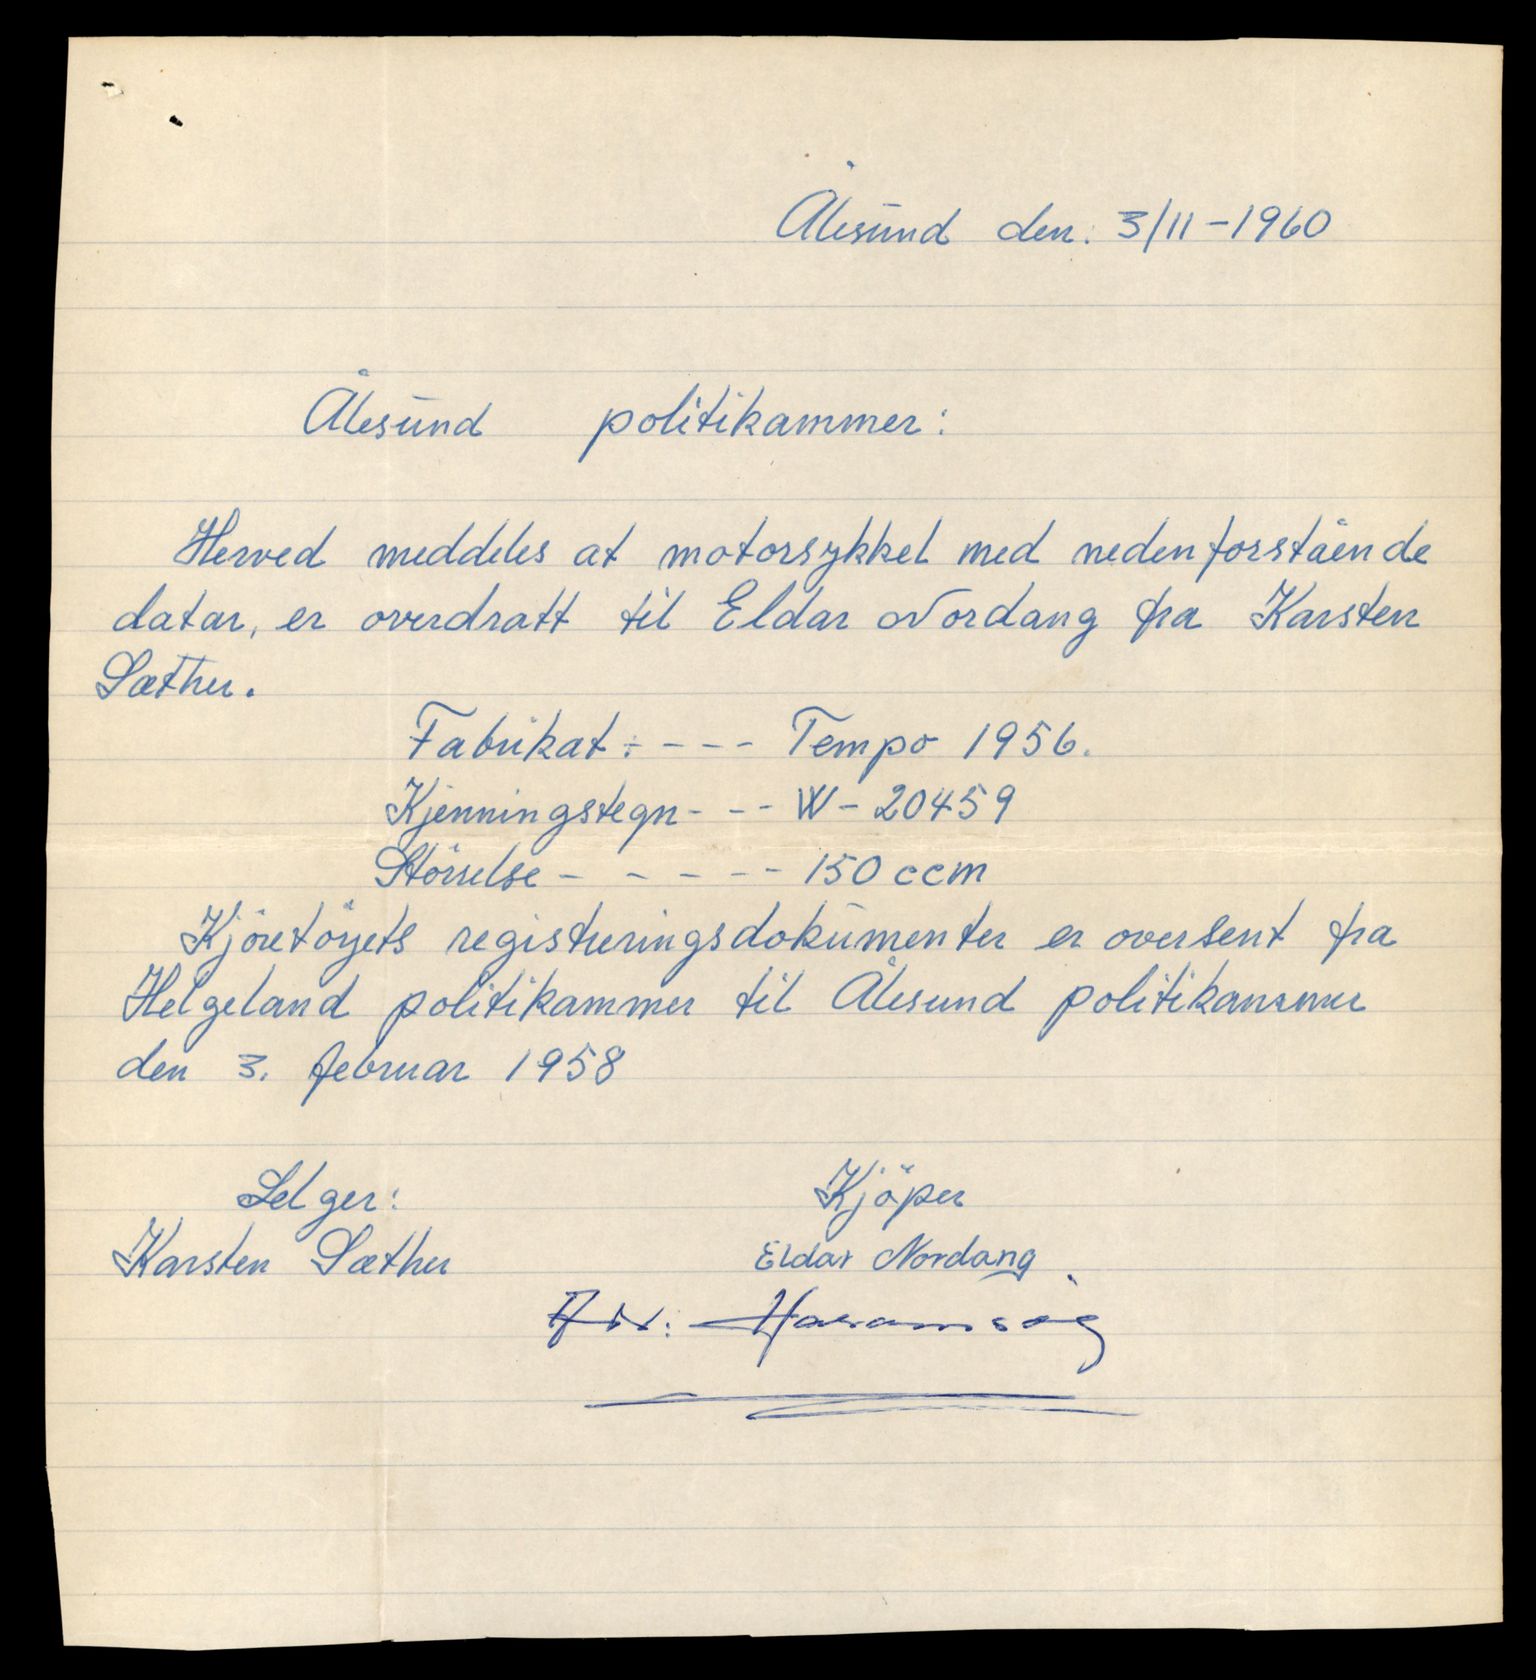 Ålesund den. 3/11-1960
Ålesund politikammer:
Herved meddeles at motorsykkel med nedenforstående
datar, er overdratt til Eldar Nordang fra Karsten
Sæther.
Fabrikat: - - - Tempo 1956.
Kjenningstegn - - - W- 20459
Störrelse - - - - - 150 ccm
Kjöretöyets registreringsdokumenter er oversent fra
Helgeland politikammer til Ålesund politikammer
den 3. februar 1958
Selger: Kjöper
Karsten Sæther Eldar Nordang
Adr: Haramsöy